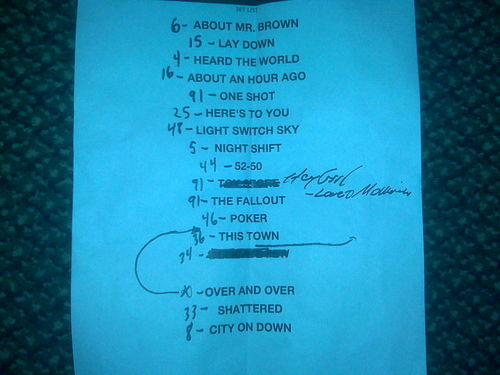 SET LIST
6- ABOUT MR. BROWN
15 - LAY DOWN
4 - HEARD THE WORLD
16 - ABOUT AN HOUR AGO
91 - ONE SHOT
25 - HERE'S TO YOU
48 - LIGHT SWITCH SKY
5 - NIGHT SHIFT
44 - 52-50
91 - Hey Girl
- Loved
91 - THE FALLOUT
46 - POKER
36 - THIS TOWN
34 -
- OVER AND OVER
33 - SHATTERED
8 - CITY ON DOWN